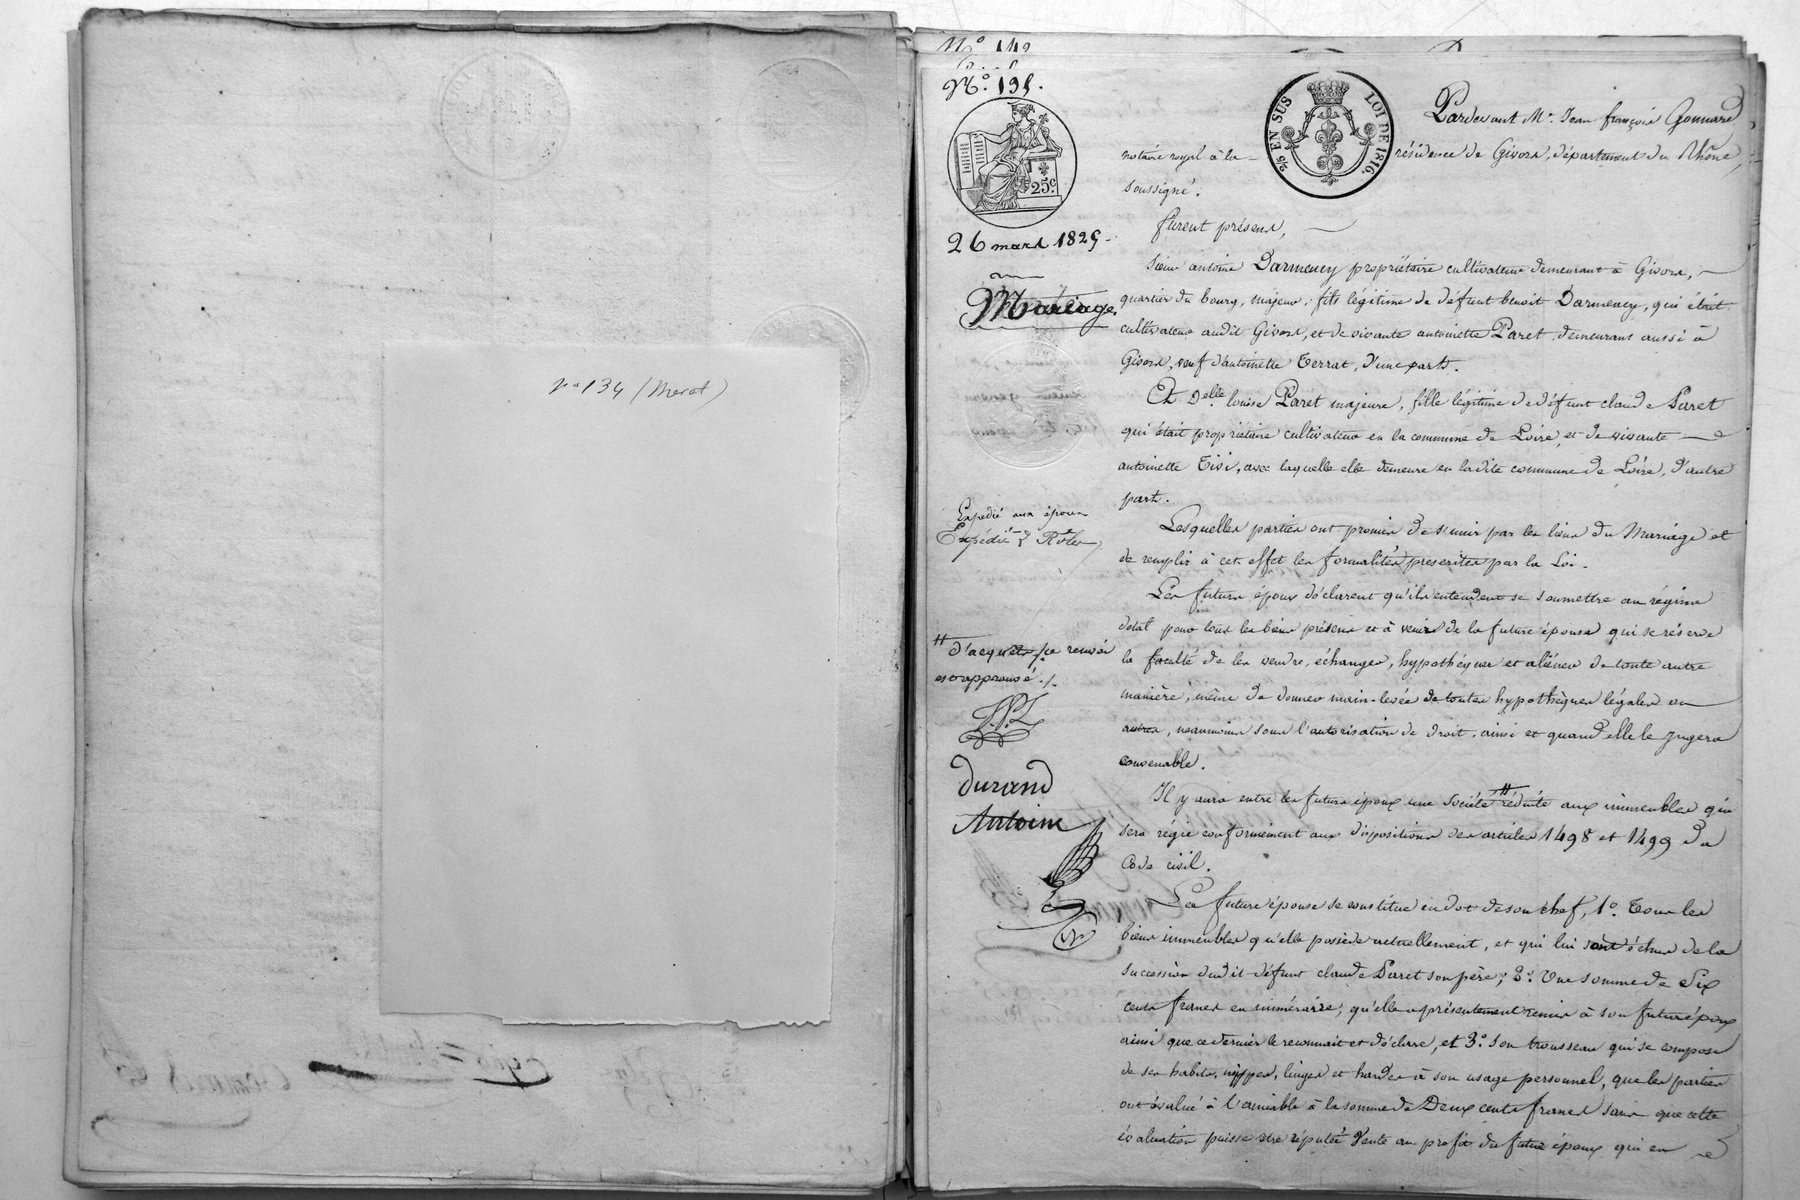 n° 134 (Meret)
N° 142
N°. 135.
25c
2/5 EN SUS LOI DE 1816.
26 mars 1825.
Mariage.
Expédié aux époux
Expédié Rôles
# d'acquets ./. ce renvoi
est approuvé ./.
durand
Antoine
Pardevant Me. Jean françois Gonnard
notaire royal à la résidence de Givors, département du Rhône,
soussigné.
furent présens,
Sieur antoine Darmency propriétaire cultivateur demeurant à Givors,
quartier du bourg, majeur, fils légitime de défunt benoit Darmency, qui était
cultivateur audit Givors, et de vivante antoinette Paret, demeurans aussi à
Givors, veuf d'antoinette Terrat, d'une part.
Et Delle louise Paret majeure, fille légitime de défunt claude Paret
qui était propriétaire cultivateur en la commune de Loire, et de vivante
antoinette Tivi, avec laquelle elle demeure en ladite commune de Loire, d'autre
part.
Lesquelles parties ont promis de s'unir par les liens du Mariage et
de remplir à cet effet les formalités prescrites par la Loi.
Les futurs époux déclarent qu'ils entendent se soumettre au régime
dotal pour tous les biens présens et à venir de la future épouse qui se réserve
la faculté de les vendre, échanger, hypothéquer et aliéner de toute autre
manière, même de donner main-levée de toutes hypothèques légales ou
autres, neanmoins sous l'autorisation de droit, ainsi et quand elle le jugera
convenable.
Il y aura entre les futurs époux une société # réduite aux immeubles qui
sera régie conformément aux dispositions des articles 1498 et 1499 du
Code civil.
La future épouse se constitue en dot de son chef, 1°. Tous les
biens immeubles qu'elle possède actuellement, et qui lui sont échus de la
succession dudit défunt claude Paret son père; 2°. Une somme de Six
cents francs en numéraire, qu'elle a présentement remise à son futur époux
ainsi que ce dernier le reconnait et déclare, et 3°. Son trousseau qui se compose
de ses habits, nippes, linges et hardes à son usage personnel, que les parties
ont évalué à l'amiable à la somme de Deux cents francs sans que cette
évaluation puisse être réputée Vente au profit du futur époux qui en